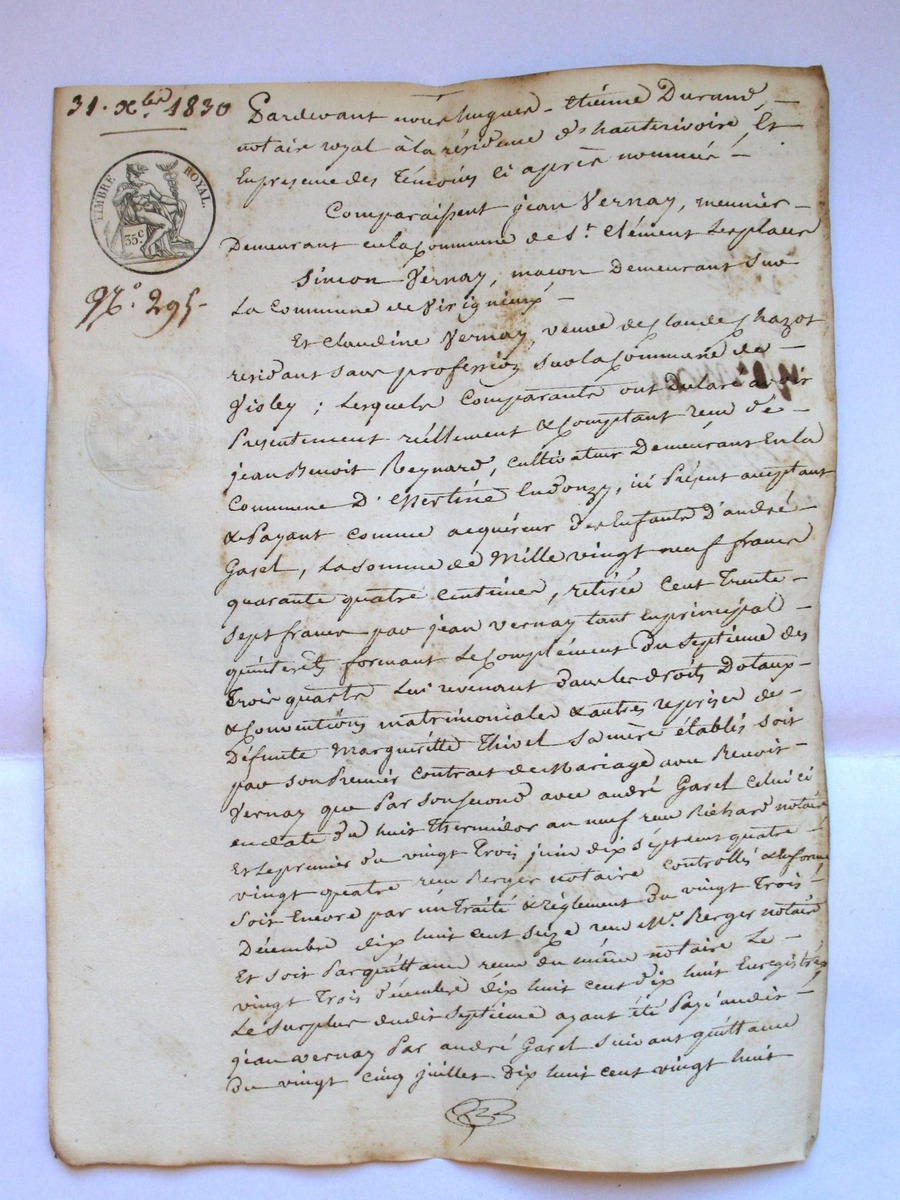 31. Xbre. 1830
TIMBRE ROYAL.
35c.
No. 295-
Pardevant nous hugues-étiénne Durand,
notaire royal à la résidence d'hauterivoire, Et
En présence des témoins ci après nommés
Comparaissent jean Vernay, meunier
Demeurant en la Commune de St. Clément Lesplaces
Simon Vernay, maçon Demeurant sur
La Commune de Virigneux
Et Claudine Vernay, veuve de Claude Chazot
résidant sans profession sur la Commune de
Violey ; Lesquels Comparants ont Déclaré avoir
Présentement réellement & Comptant reçu de
jean Benoit Reynard, Cultivateur Demeurant En la
Commune D'Essertine En Donzy, ici Présent acceptant
& Payant Comme acquéreur des Enfants D'andré
Garel, La somme de Mille vingt neuf francs
quarante quatre Centimes, retirée Cent Trente
sept francs par jean Vernay tant En principal
qu'intérêts formant Le Complément du Septième des
Trois quarts Lui revenant Dans les droits Dotaux
& Conventions matrimoniales & autres reprises de
Défunte Margueritte Thivel sa mère établis soit
par son Premier Contrat de Mariage avec Benoit
Vernay que Par son second avec andré Garel Celui ci
en date du huit Thermidor an neuf reçu Richard notaire
Et Le premier du vingt Trois juin dix sept cent quatre
vingt quatre reçu Berger notaire Controllés & Informe
Soit Encore par un Traité & règlement du vingt Trois
Décembre dix huit cent seize reçu Me. Berger notaire
Et soit Par quittance reçue du même notaire Le
vingt Trois décembre dix huit cent dix huit Enregistrés
Le Surplus dudit Septième ayant été Payé audit
jean vernay Par andré Garel suivant quittance
Du vingt Cinq juillet Dix huit cent vingt huit